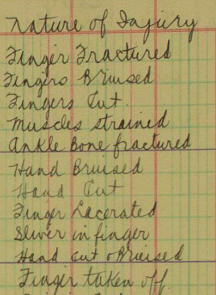 Nature of Injury
Finger Fractured
Fingers Bruised
Fingers Cut.
Muscles strained
Ankle Bone fractured
Hand Bruised
Hand Cut
Finger Lacerated
Sliver in finger
Hand Cut & Bruised
Finger taken off